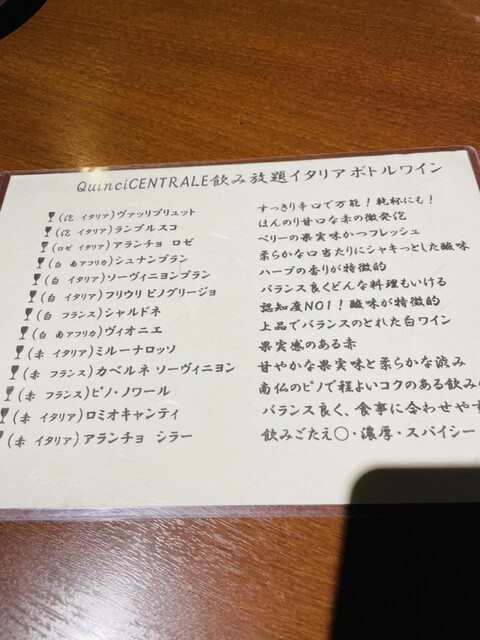 QuinciCENTRALE飲み放題イタリアボトルワイン
(泡 イタリア)ヴァッリブリュット すっきり辛口で万能！乾杯にも！
(泡 イタリア)ランブルスコ ほんのり甘口な赤の微発泡
(ロゼ イタリア)アランチョ ロゼ ベリーの果実味かつフレッシュ
(白 南アフリカ)シュナンブラン 柔らかな口当たりにシャキっとした酸味
(白 イタリア)ソーヴィニヨンブラン ハーブの香りが特徴的
(白 イタリア)フリウリ ピノグリージョ バランス良くどんな料理もいける
(白 フランス)シャルドネ 認知度NO1！酸味が特徴的
(白 南アフリカ)ヴィオニエ 上品でバランスのとれた白ワイン
(赤 イタリア)ミルーナロッソ 果実感のある赤
(赤 フランス)カベルネ ソーヴィニヨン 甘やかな果実味と柔らかな渋み
(赤 フランス)ピノ・ノワール 南仏のピノで程よいコクのある飲み
(赤 イタリア)ロミオキャンティ バランス良く、食事に合わせやす
(赤 イタリア)アランチョ シラー 飲みごたえ〇・濃厚・スパイシー